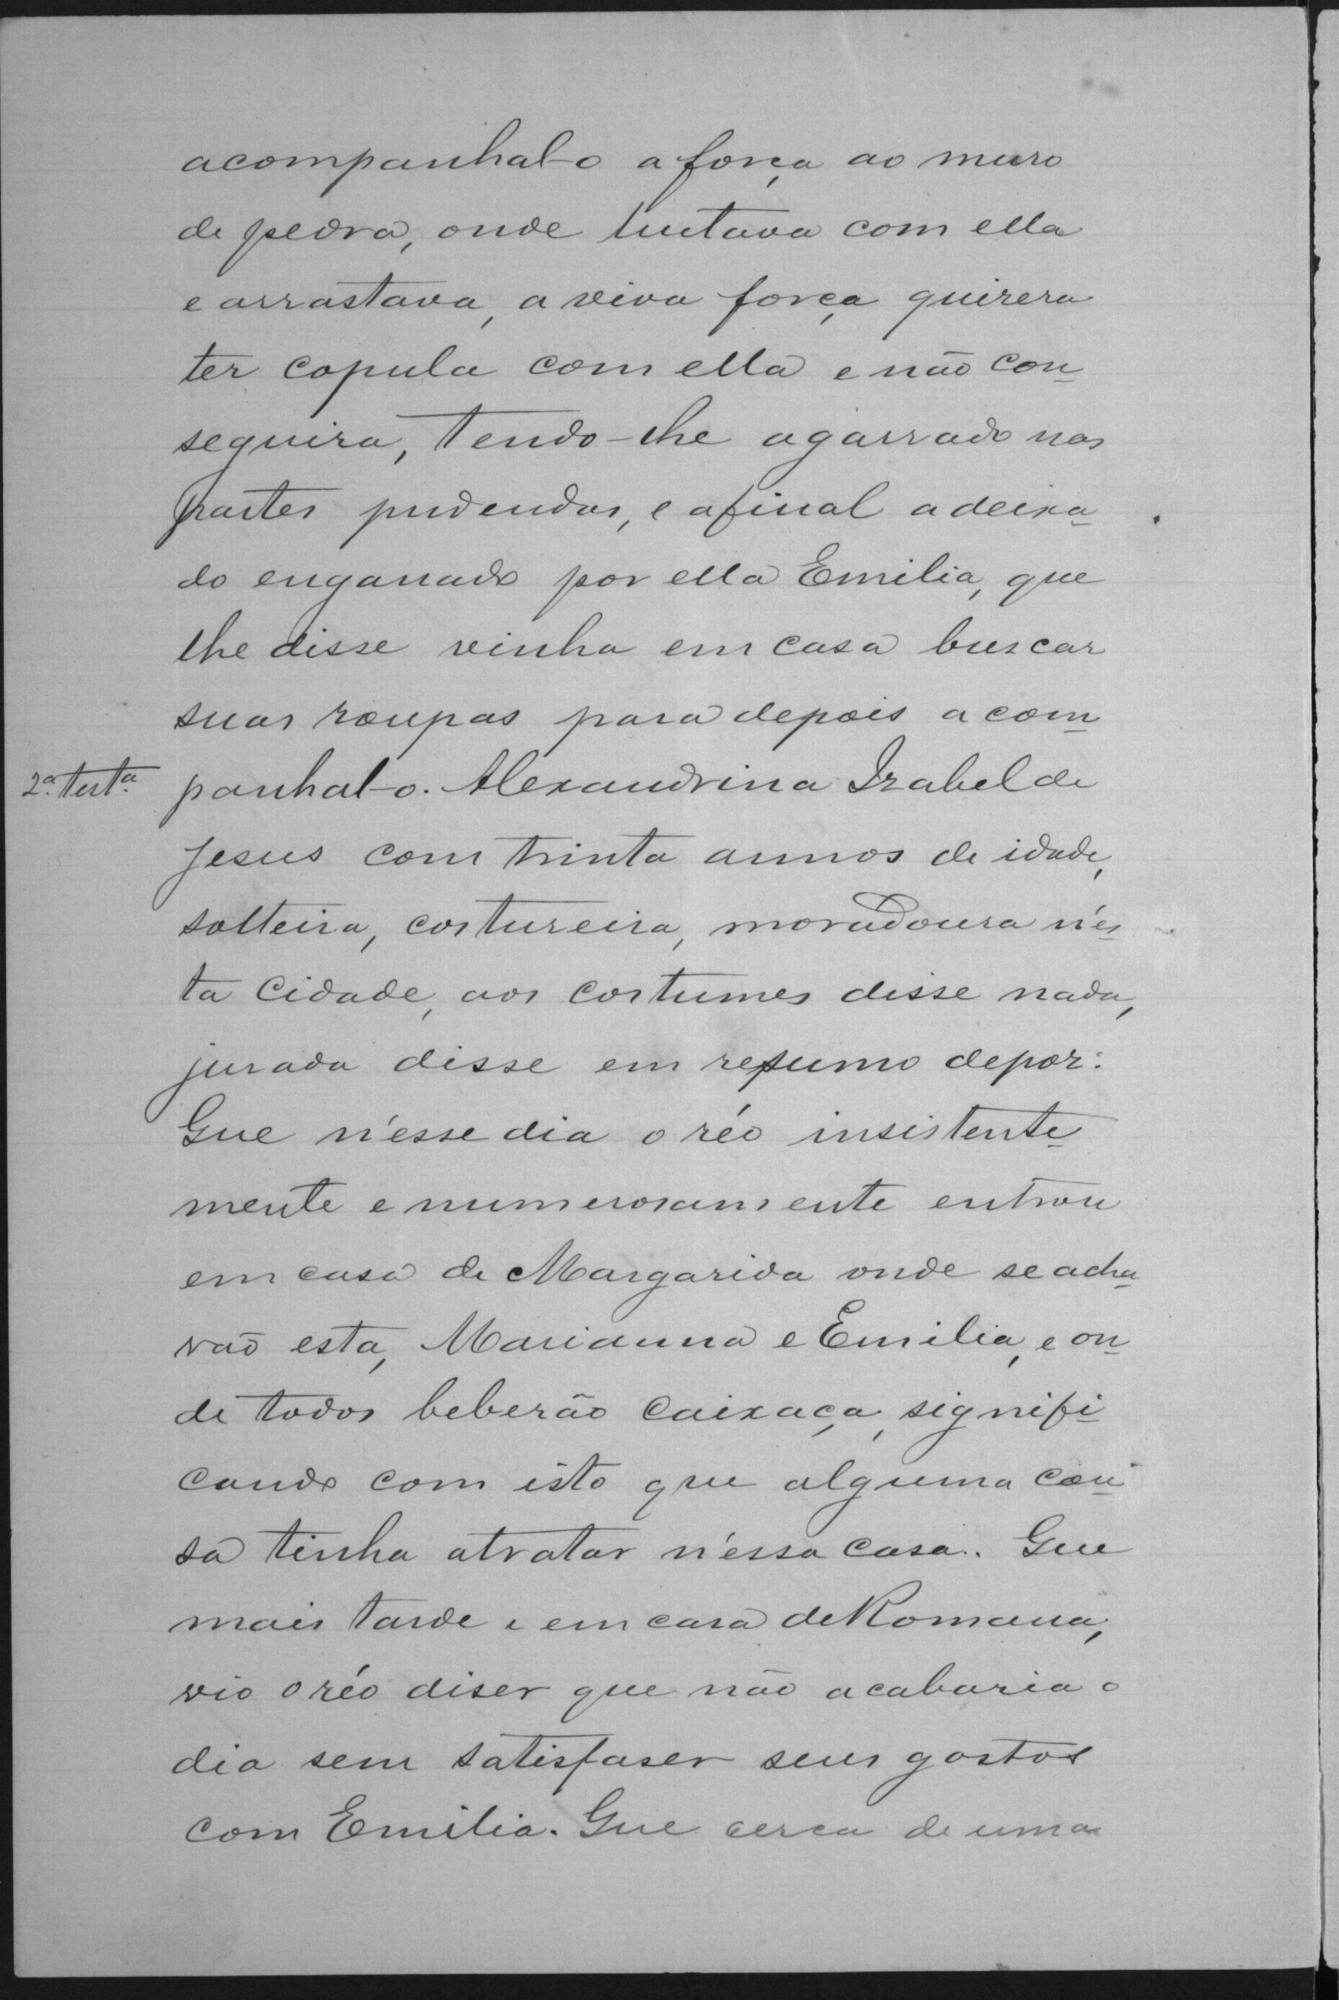 acompanhal-o a força ao muro
de pedra, onde luctava com ella
e arrastava, a viva força quizera
ter copula com ella e não con-
seguira, tendo-lhe agarrado nas
partes pudendas, e afinal a deixa-
do enganado por ella Emilia, que
lhe disse vinha em casa buscar
suas roupas para depois acom-
2.ª test.ª panhal-o. Alexandrina Izabel de
Jesus com trinta annos de idade,
solteira, costureira, moradoura n'es-
ta cidade, aos costumes disse nada,
jurada disse em resumo depor:
Que n'esse dia o réo insistente-
mente e numerosamente entrou
em casa de Margarida onde se acha-
vaõ esta, Marianna e Emilia, e on-
de todos beberão caixaça, signifi-
cando com isto que alguma cou-
sa tinha atratar n'essa casa. Que
mais tarde e em casa de Romana,
vio o réo diser que não acabaria o
dia sem satisfaser seus gostos
com Emilia. Que cerca de uma